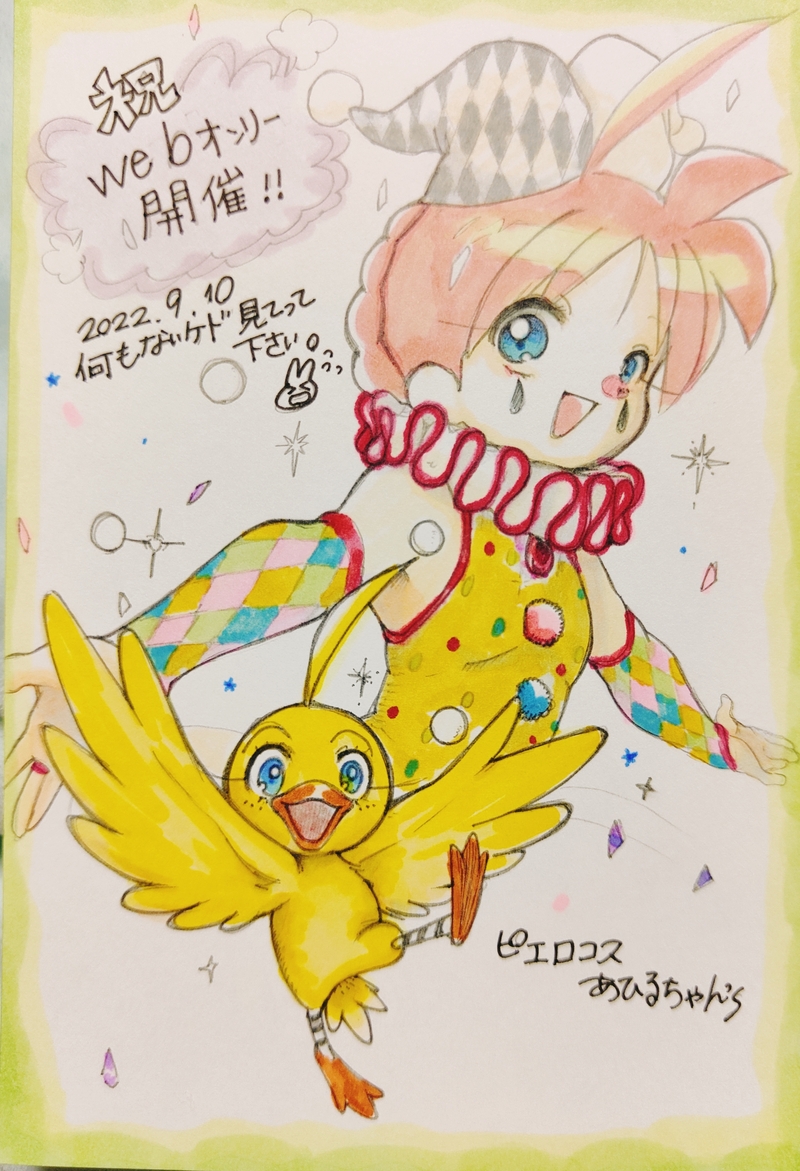 祝
webオンリー
開催!!
2022.9.10
何もないケド見てって
下さい。
ピエロコス
あひるちゃん's